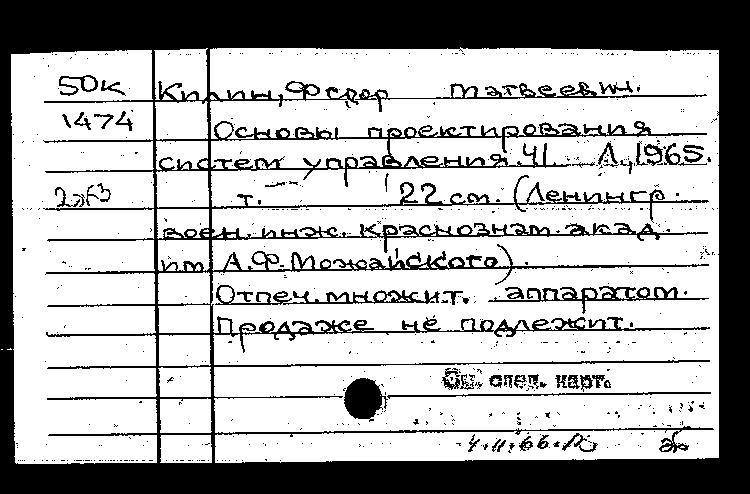 50к Килин, Федор Матвеевич.
1474 Основы проектирования
систем управления. Ч1. Л., 1965.
2 экз т. 22 см. (Ленингр.
воен. инж. краснознам. акад.
им. А.Ф. Можайского).
Отпеч. множит. аппаратом.
Продаже не подлежит.
См. спец. карт.
4.11.66.